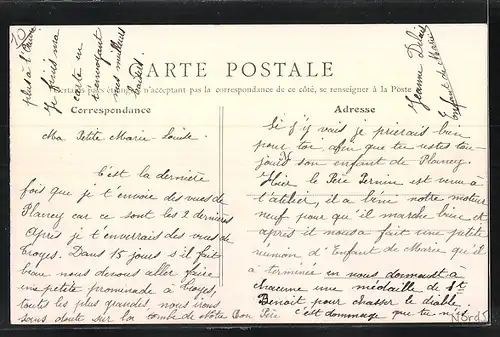 CARTE POSTALE
Certains pays étrangers n'acceptant pas la correspondance de ce côté, se renseigner à la Poste
Correspondance
Ma Petite Marie-Louise.
C'est la dernière
fois que je t'envoie des vues de
Plancy car ce sont les 2 dernières
Après je t'enverrai des vues de
Troyes. Dans 15 jours s'il fait
beau nous devons aller faire
une petite promenade à Troyes,
toutes les plus grandes, nous irons
sans doute sur la tombe de Notre Bon Père
Adresse
Si j'y vais je prierais bien
pour toi, afin que tu restes tou-
jours son enfant de Plancy.
Hier le Père Perrin est venu à
l'atelier, il a béni notre moteur
neuf pour qu'il marche bien et
après il nous a fait une petite
réunion d'Enfant de Marie qu'il
a terminée en nous donnant à
chacune une médaille de St
Benoit pour chasser le diable.
c'est dommage que tu n'es
plus à l'
Je finis ma
carte en
t'envoyant
mes meilleurs
baisers.
Jeanne
Enfant de Marie